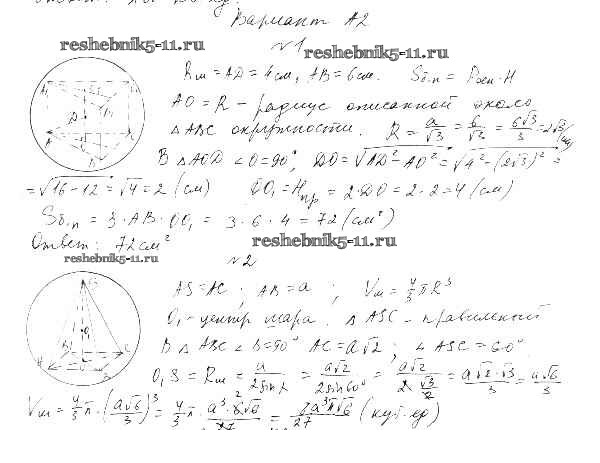 Вариант А2
reshebnik5-11.ru
№1
reshebnik5-11.ru
Rш = AD = 4 см, AB = 6 см. Sб.п = Pосн · H
AO = R – радиус описанной около
△ABC окружности. R = a/√3 = 6/√3 = 6√3/3 = 2√3 (см)
В △AOD ∠O = 90°, DO = √(AD² – AO²) = √(4² – (2√3)²) =
= √(16 – 12) = √4 = 2 (см) OO₁ = Hпр = 2 · DO = 2 · 2 = 4 (см)
Sб.п = 3 · AB · OO₁ = 3 · 6 · 4 = 72 (см²)
Ответ: 72 см²
reshebnik5-11.ru
reshebnik5-11.ru
№2
AS = AC ; AB = a ; Vш = 4/3 πR³
O₁ – центр шара. △ASC – правильный
В △ABC ∠B = 90° AC = a√2 ; ∠ASC = 60°
O₁S = Rш = a/2sin∠ = a√2/2sin60° = a√2/(2·√3/2) = a√2·√3/3 = a√6/3
Vш = 4/3 π · (a√6/3)³ = 4/3 π · a³·6√6/27 = 8a³π√6/27 (куб.ед)